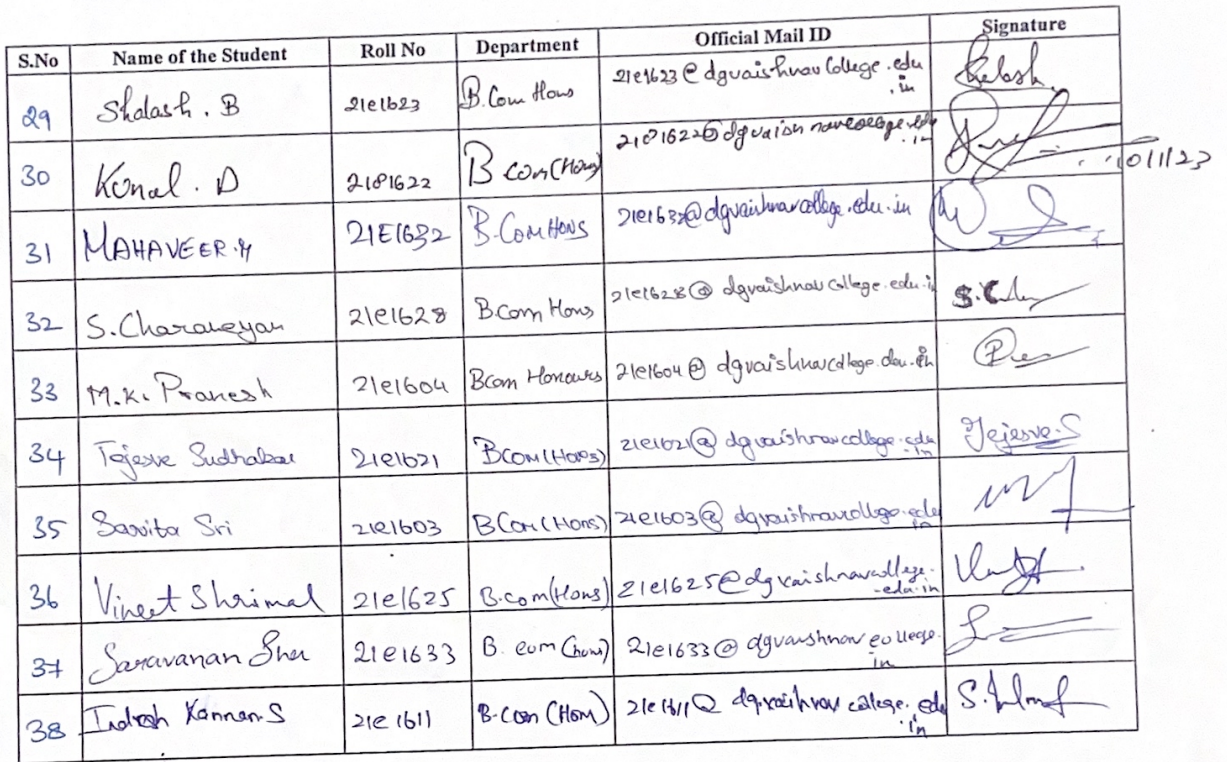 S.No Name of the Student Roll No Department Official Mail ID Signature
29 Shalash . B 21e1623 B.Com Hons 21e1623@dgvaishnavCollege.edu
.in
30 Konal . D 21e1622 B com(Hons) 21e1622@dgvaishnavcollege.edu
.in
10/1/23
31 MAHAVEER.M 21E1632 B.Com HONS 21e1632@dgvaishnavcollege.edu.in
32 S.Charaneyan 21e1628 B.Com Hons 21e1628@dgvaishnavCollege.edu.in S.C
33 M.K. Pranesh 21e1604 BCom Honours 21e1604@dgvaishnavCollege.dou.in
34 Tejesve Sudhakar 21e1621 BCOM(Hons) 21e1021@dgvaishnavcollege.edu Tejesve.S
.in
35 Savita Sri 21e1603 BCom(Hons) 21e1603@dgvaishnavcollege.edu
.in
36 Vineet Shrimal 21e1625 B.com(Hons) 21e1625@dgvaishnavcollege.
edu.in
37 Saravanan 21e1633 B. com (hons) 21e1633@dgvaishnavcollege.
in
38 Indresh Kannan.S 21e1611 B.Com (HOM) 21e1611@dgvaishnavcollege.edu
.in